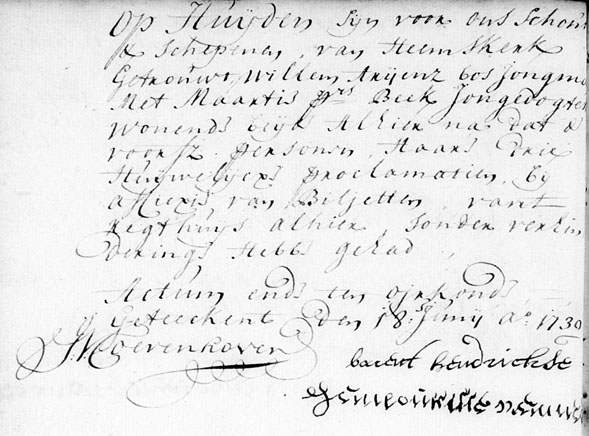 Op Huijden sijn voor ons Schout
& Schepenen, van Heemskerk
Getrouwt, Willem Arijenz bos Jongma
Met Maartis Prs Beek Jongedogter
wonende beijde Alhier na dat de
voorsz. Personen, Haare drie
Huuwelyexs proclamatien, by
affiexis van Biljetten, vant
Regthuijs alhier, sonder verhin
deringe Hebbe gehad
Actum ende ten oirkonde
Geteeckent Den 18: Junij Ao. 1730
barent hendrickse